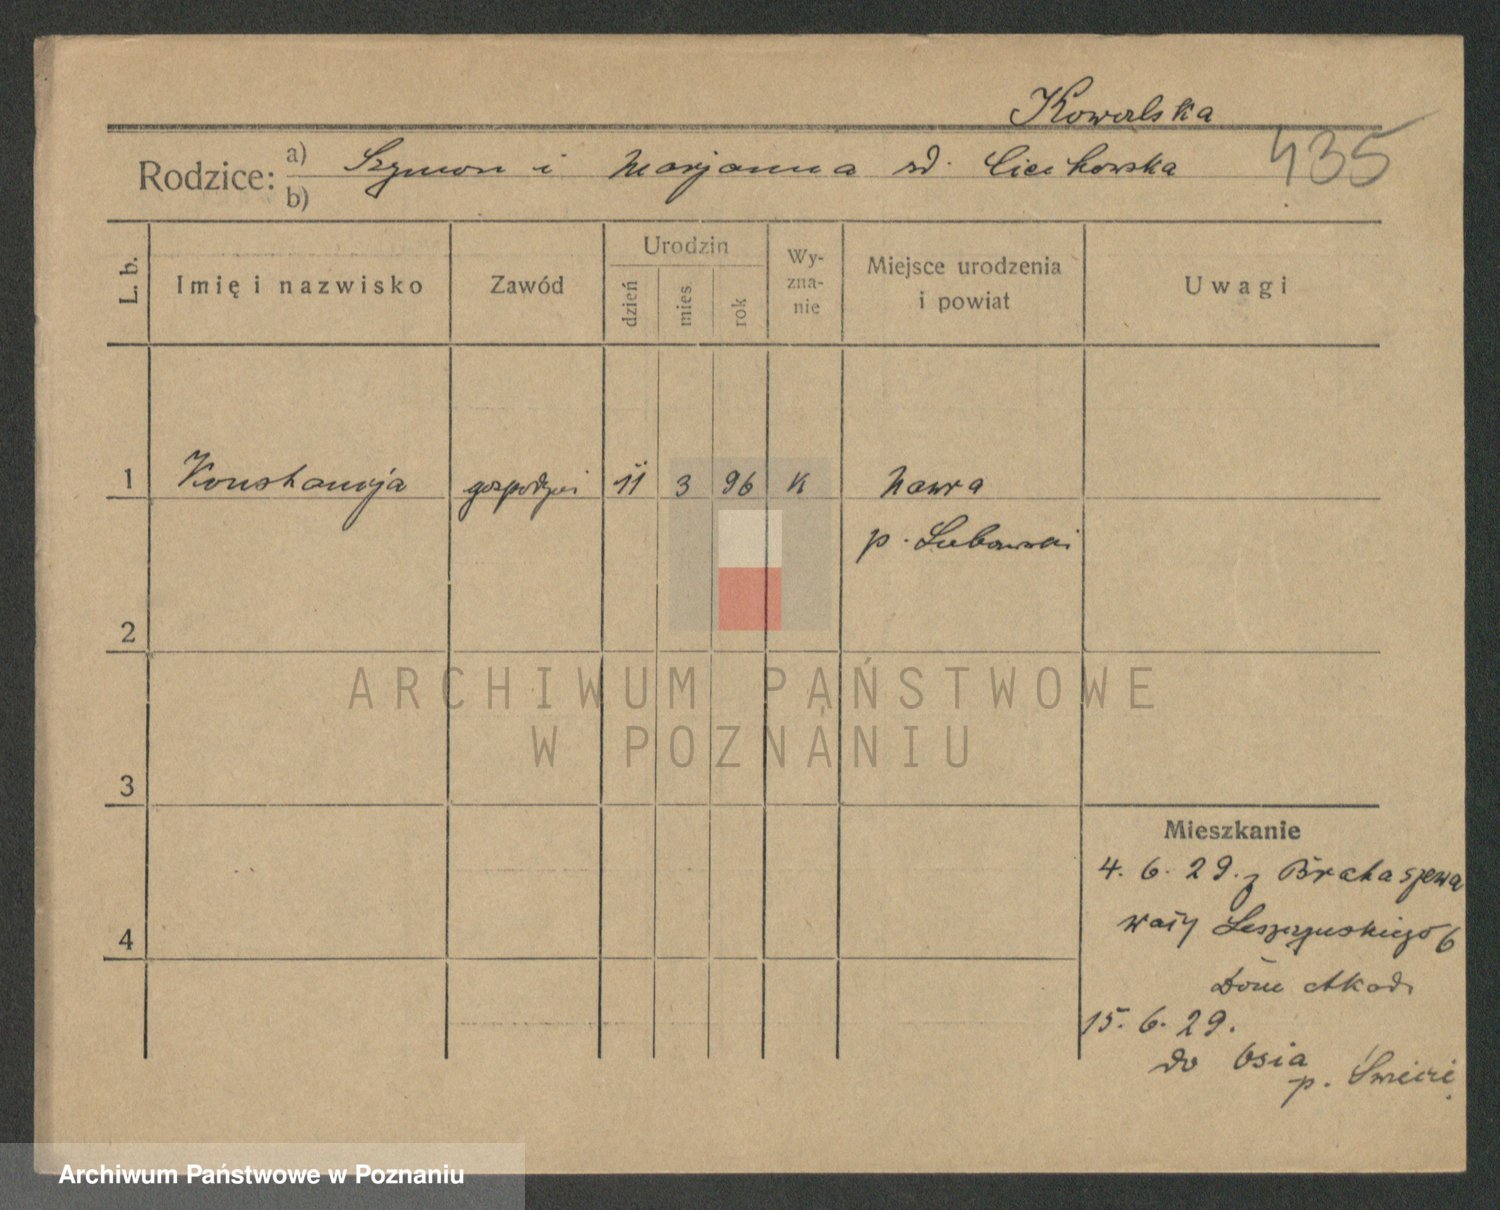 Kowalska
435
Rodzice: a) Szymon i Marjanna zd. Ciechowska
b)
L. b.
Imię i nazwisko
Zawód
Urodzin
dzień
mies
rok
Wy-
zna-
nie
Miejsce urodzenia
i powiat
Uwagi
1 Konstancja gospodyni 11 3 96 K Nawra
p. Lubawski
2
3
4
ARCHIWUM PAŃSTWOWE
W POZNANIU
Mieszkanie
4. 6. 29. z
wały Leszczyńskiego 6
Dom Akad.
15. 6. 29.
do Osia
p. Świecie
Archiwum Państwowe w Poznaniu